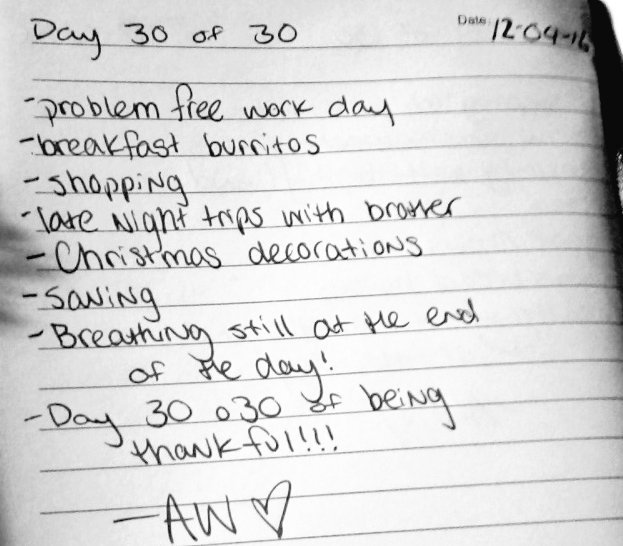 Day 30 of 30
Date: 12-09-16
-problem free work day
-breakfast burritos
-shopping
-late Night trips with brother
-Christmas decorations
-SaviNg
-Breathing still at the end
of the day!
-Day 30 o30 of being
thankful!!!
-AW ♡